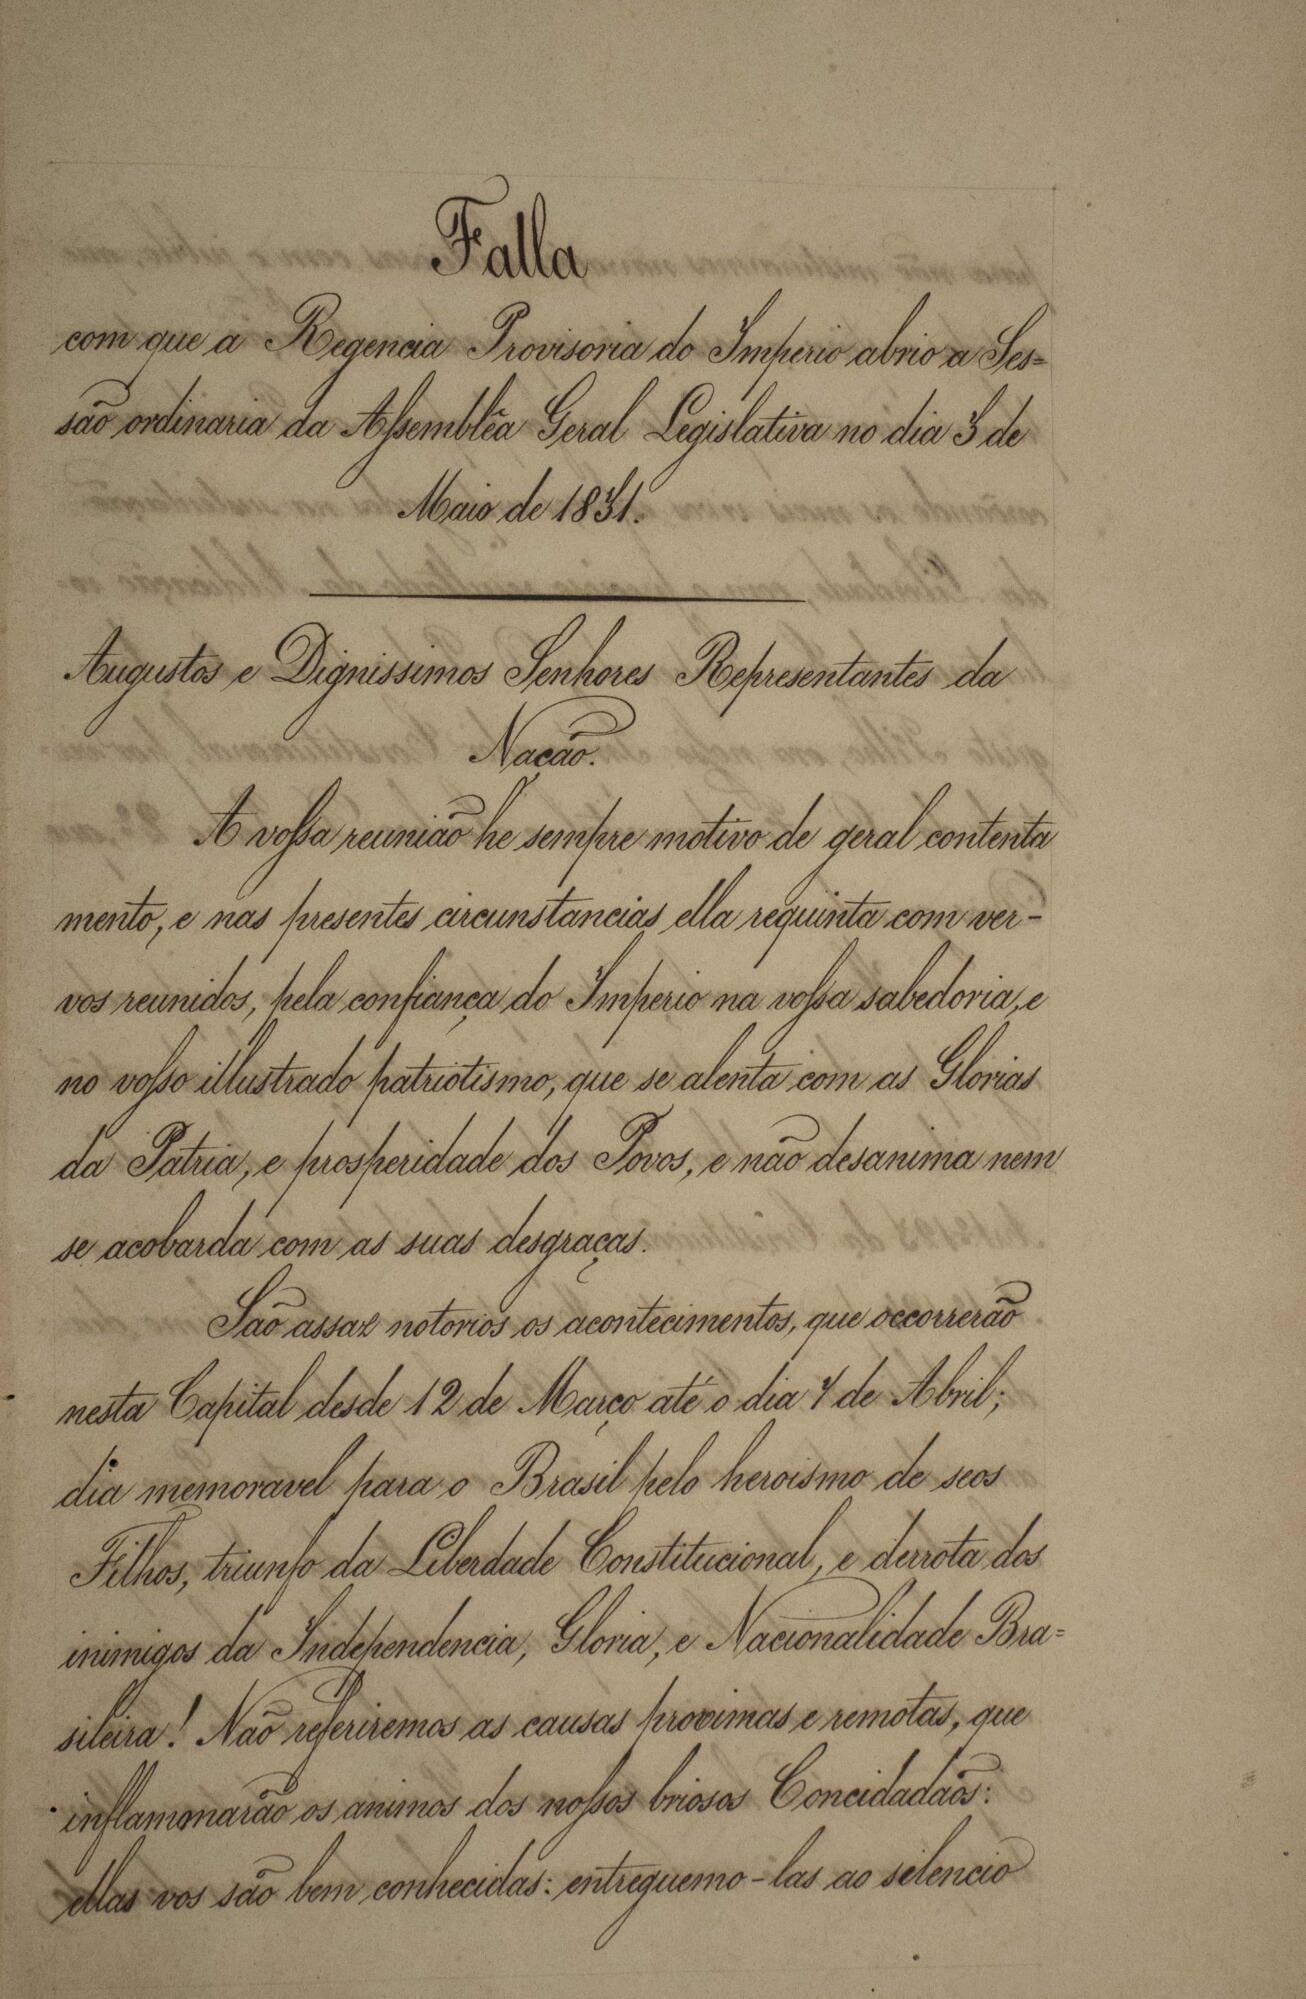 Falla
com que a Regencia Provisoria do Imperio abrio a Ses=
são ordinaria da Assemblêa Geral Legislativa no dia 3 de
Maio de 1831.
Augustos e Dignissimos Senhores Representantes da
Nação.
A vossa reunião he sempre motivo de geral contenta
mento, e nas presentes circunstancias ella requinta com ver-
vos reunidos, pela confiança do Imperio na vossa sabedoria, e
no vosso illustrado patriotismo, que se alenta com as Glorias
da Patria, e prosperidade dos Povos, e não desanima nem
se acobarda com as suas desgraças.
São assaz notorios os acontecimentos, que occorrerão
nesta Capital desde 12 de Março até o dia 7 de Abril;
dia memoravel para o Brasil pelo heroismo de seos
Filhos, triunfo da Liberdade Constitucional, e derrota dos
inimigos da Independencia, Gloria, e Nacionalidade Bra=
sileira! Não referiremos as causas proximas e remotas, que
inflammarão os animos dos nossos briosos Concidadãos:
ellas vos são bem conhecidas: entreguemo-las ao silencio